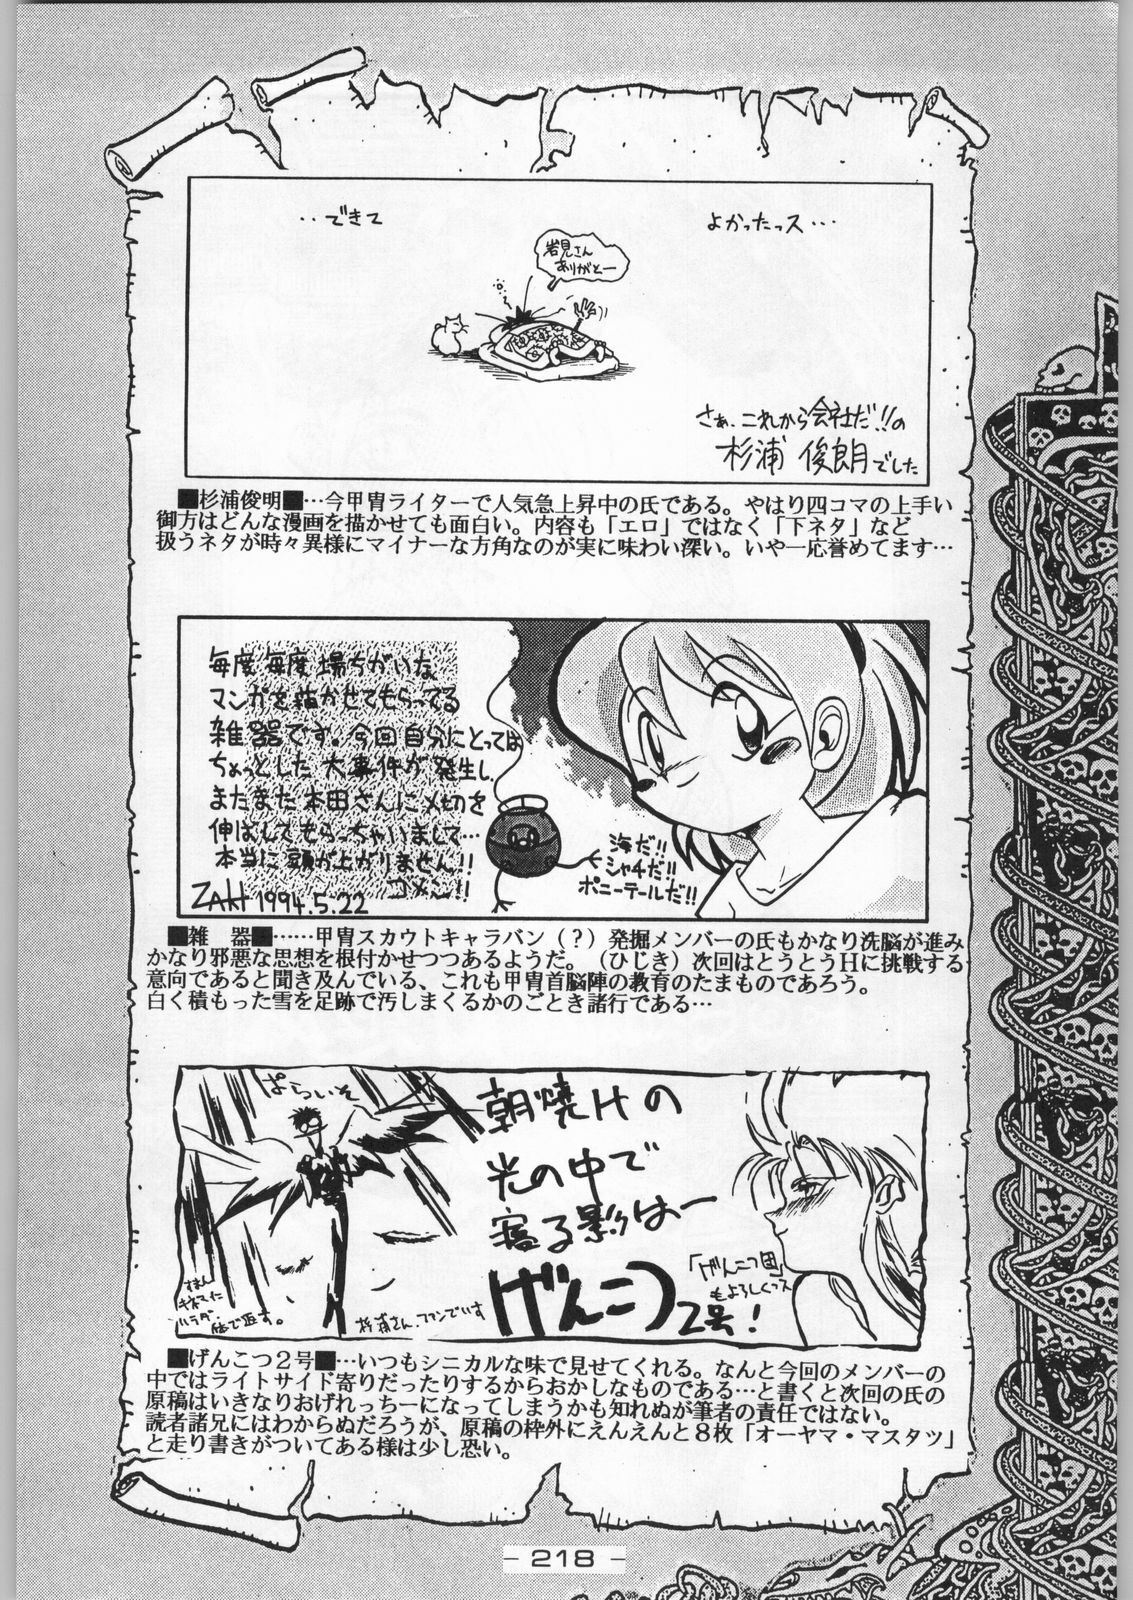 ‥できて
よかったっス…
岩見さん
ありがとー
さぁ、これから会社だ!!の
杉浦 俊朗でした
■杉浦俊明■…今甲冑ライターで人気急上昇中の氏である。やはり四コマの上手い
御方はどんな漫画を描かせても面白い。内容も「エロ」ではなく「下ネタ」など
扱うネタが時々異様にマイナーな方角なのが実に味わい深い。いや一応誉めてます…
毎度毎度場ちがいな
マンガを描かせてもらってる
雑器です。今回自分にとっては
ちょっとした大事件が発生し
またまた本田さんに〆切を
伸ばしてもらっちゃいまして…
本当に頭が上がりません!!
ゴメン!!
ZAKI 1994.5.22
海だ!!
シャチだ!!
ポニーテールだ!!
■雑 器■……甲冑スカウトキャラバン（？）発掘メンバーの氏もかなり洗脳が進み
かなり邪悪な思想を根付かせつつあるようだ。（ひじき）次回はとうとうHに挑戦する
意向であると聞き及んでいる、これも甲冑首脳陣の教育のたまものであろう。
白く積もった雪を足跡で汚しまくるかのごとき諸行である…
ぱらいそ
朝焼けの
光の中で
寝る影はー
げんこつ2号!
「げんこつ団」
もよろしくっス
杉浦さん、ファンでいす
■げんこつ２号■…いつもシニカルな味で見せてくれる。なんと今回のメンバーの
中ではライトサイド寄りだったりするからおかしなものである…と書くと次回の氏の
原稿はいきなりおげれっちーになってしまうかも知れぬが筆者の責任ではない。
読者諸兄にはわからぬだろうが、原稿の枠外にえんえんと８枚「オーヤマ・マスタツ」
と走り書きがついてある様は少し恐い。
- 218 -